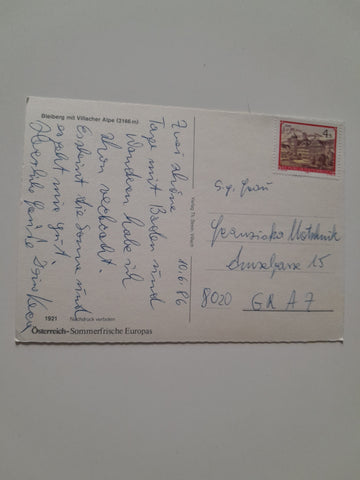 Bleiberg mit Villacher Alpe (2166 m)
10.6.86
Zwei schöne
Tage mit Baden und
Wandern habe ich
schon verbracht.
Es scheint die Sonne und
es geht mir gut.
Herzliche Grüße
4 S
Verlag
S.g. Frau
Franziska
15
8020 GRAZ
1921 Nachdruck verboten
Österreich-Sommerfrische Europas